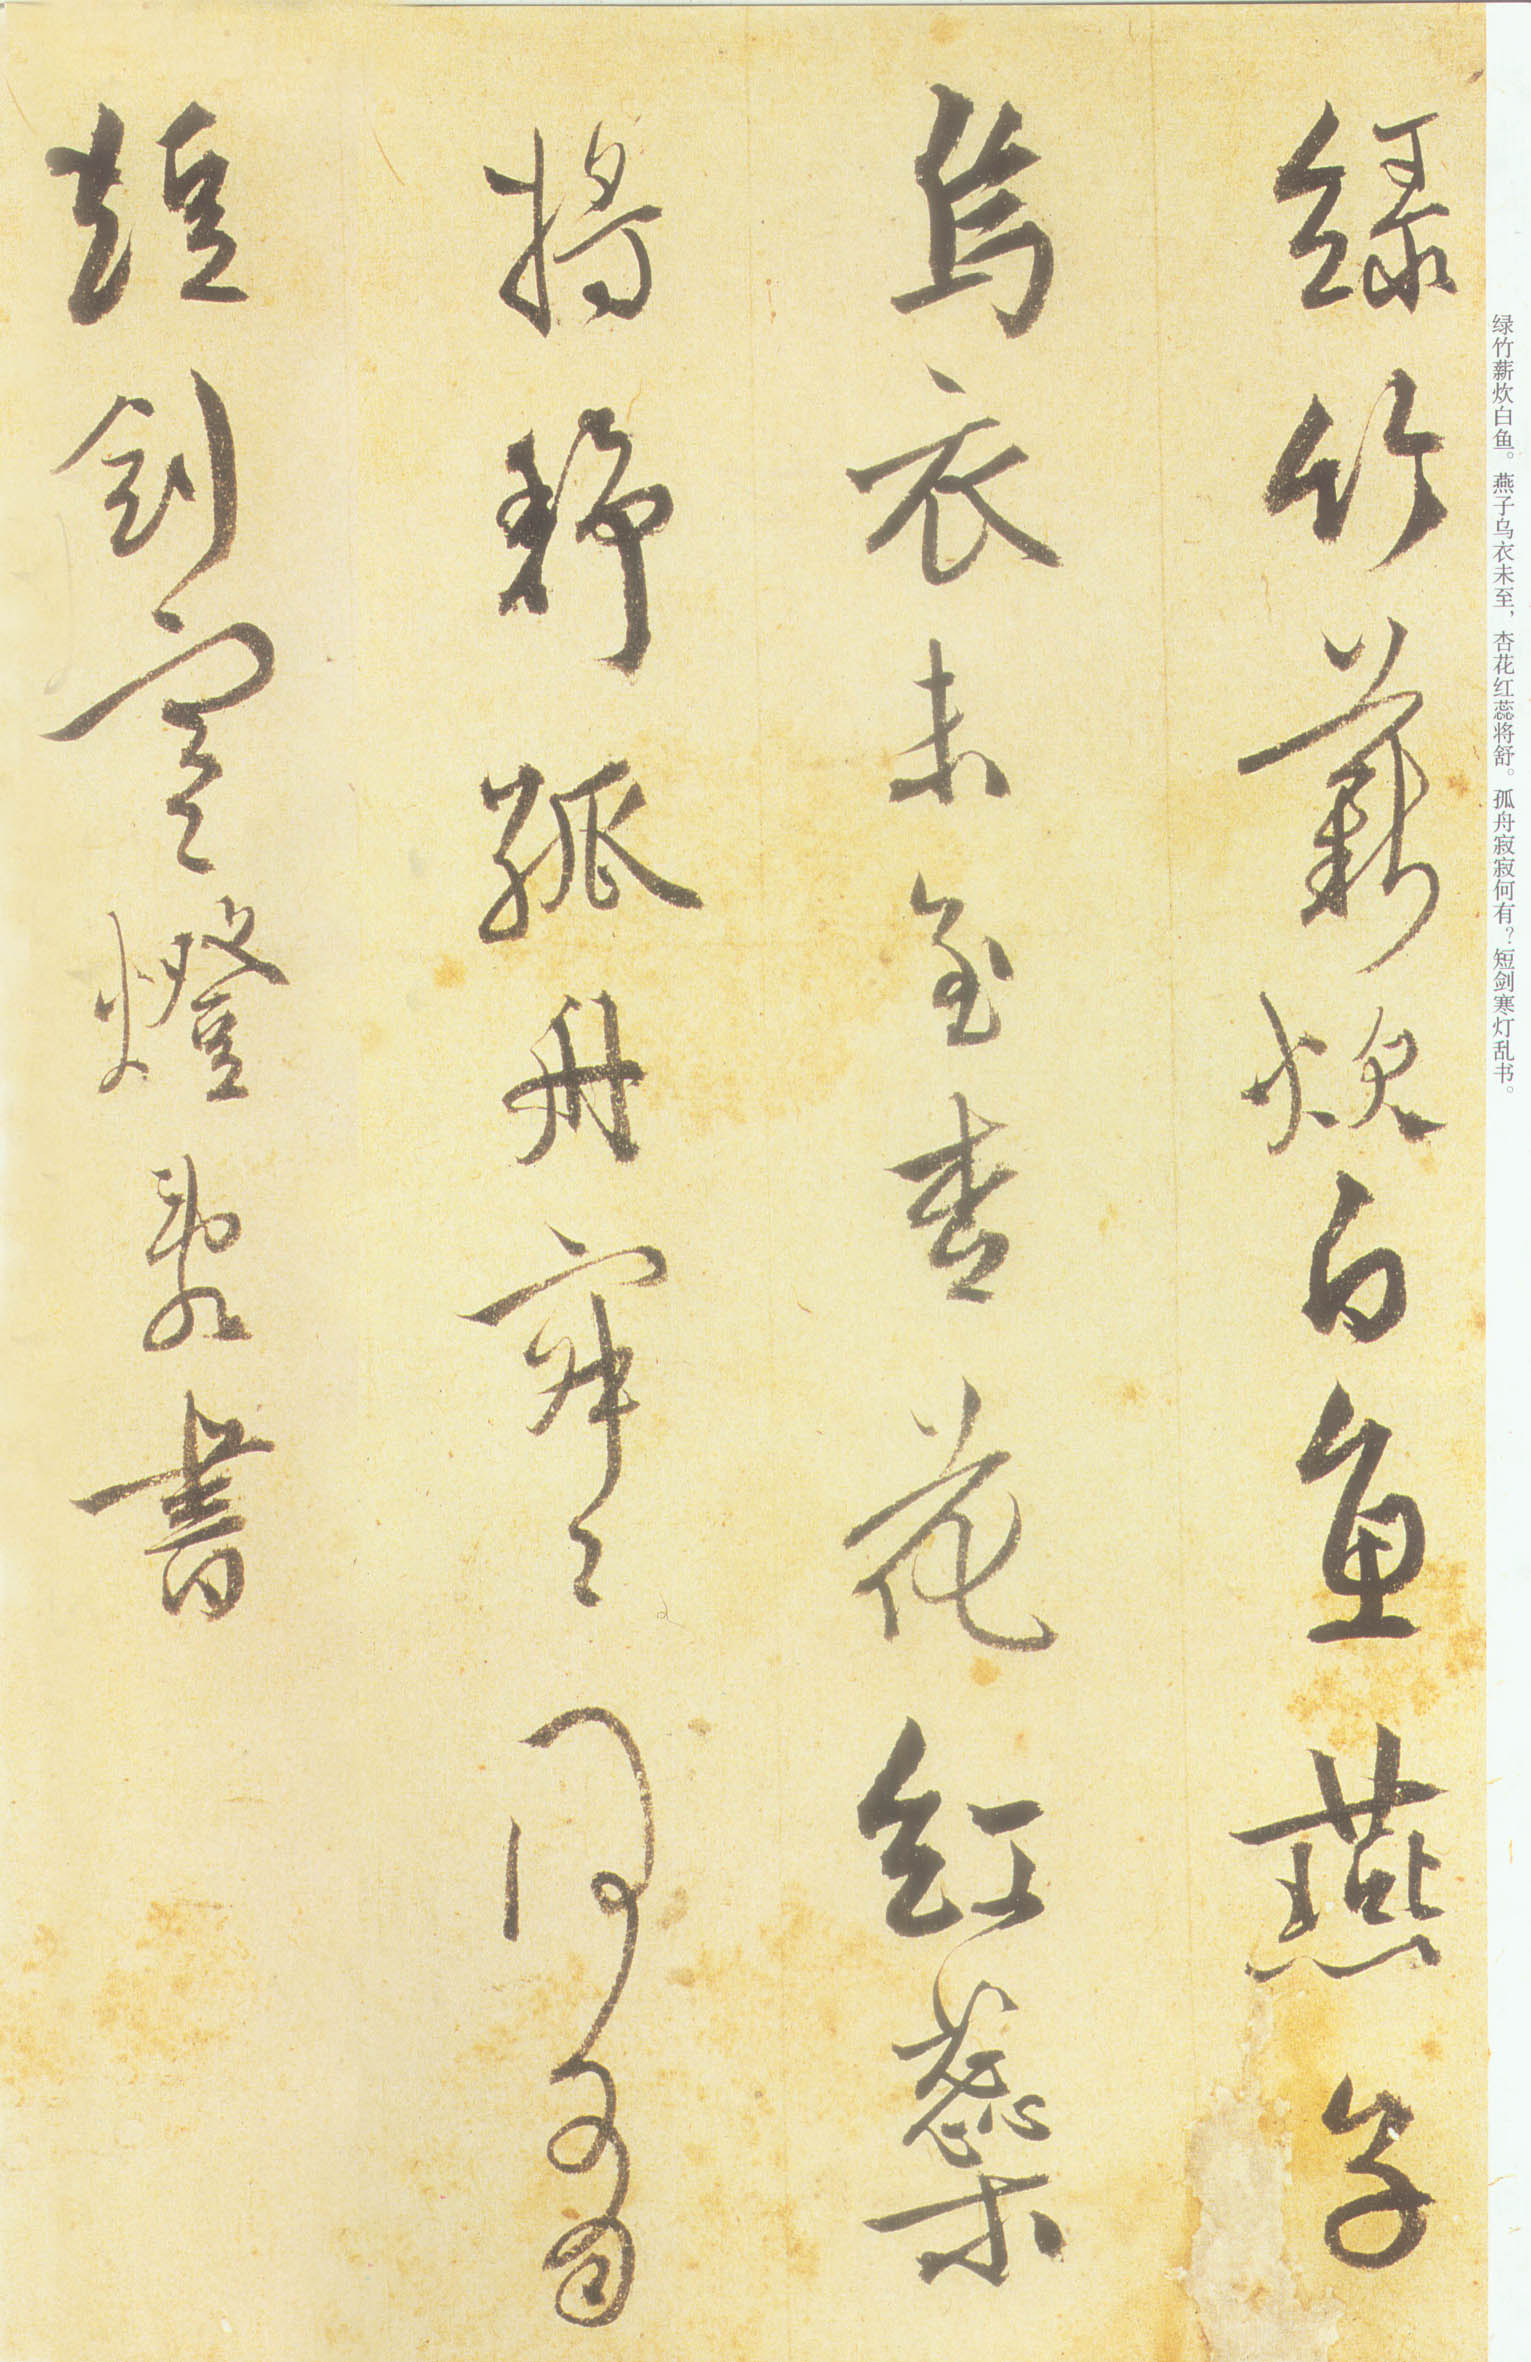 綠竹薪炊白魚燕子
烏衣未至杏花紅蘂
將舒孤舟寂〻何有
短劍寒燈亂書
绿竹薪炊白鱼。燕子乌衣未至，杏花红蕊将舒。孤舟寂寂何有？短剑寒灯乱书。